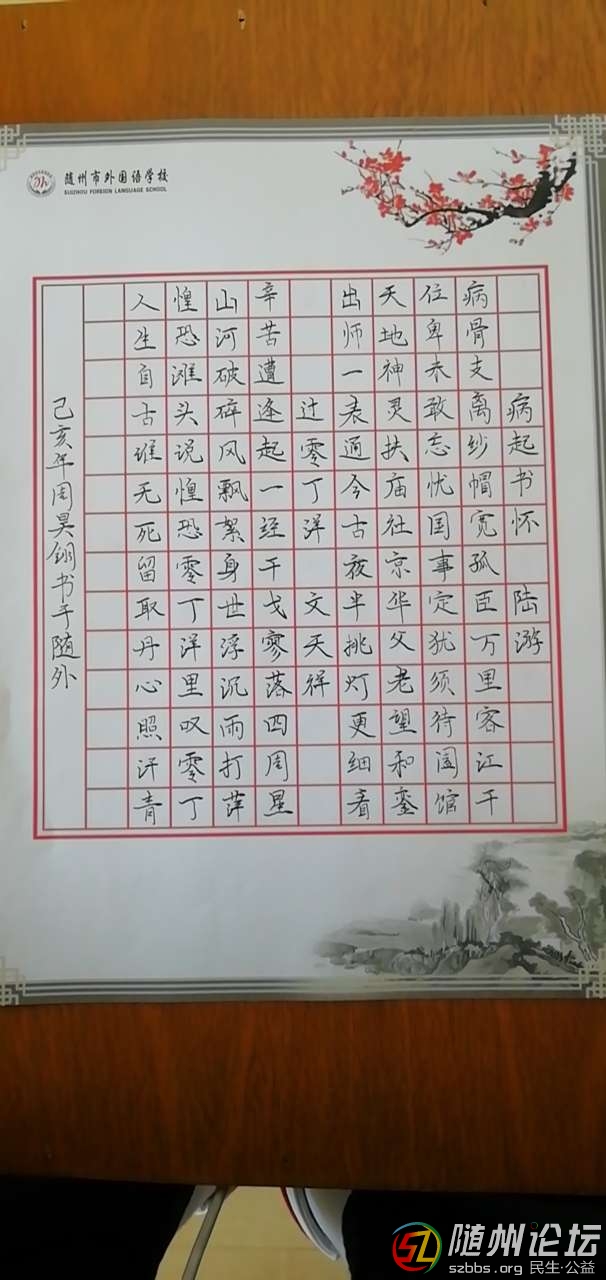 随州市外国语学校
SUIZHOU FOREIGN LANGUAGE SCHOOL
病起书怀 陆游
病骨支离纱帽宽孤臣万里客江干
位卑未敢忘忧国事定犹须待阖馆
天地神灵扶庙社京华父老望和銮
出师一表通今古夜半挑灯更细看
过零丁洋 文天祥
辛苦遭逢起一经干戈寥落四周星
山河破碎风飘絮身世浮沉雨打萍
惶恐滩头说惶恐零丁洋里叹零丁
人生自古谁无死留取丹心照汗青
己亥年周昊 书于随外
随州论坛
szbbs.org 民生·公益